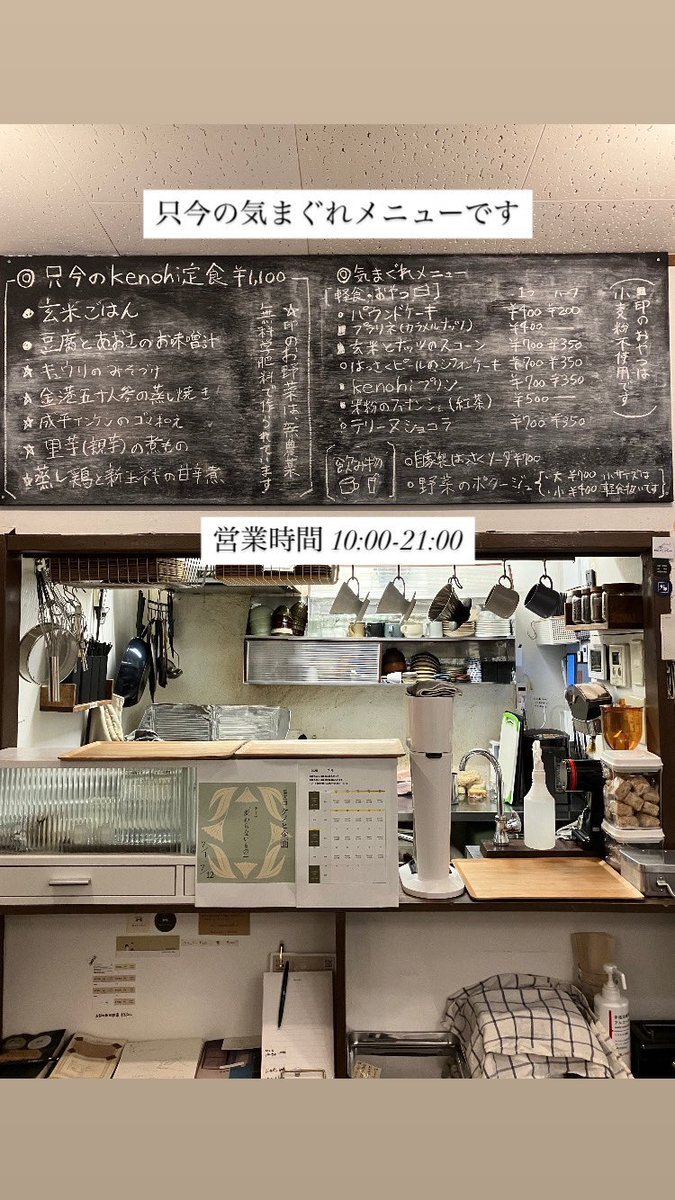 只今の気まぐれメニューです
◎只今のkenohi定食 ¥1,100
●玄米ごはん
●豆腐とあおさのお味噌汁
☆キュウリのみそづけ
☆金港五寸人参の蒸し焼き
☆成平インゲンのゴマ和え
☆里芋(親芋)の煮もの
☆蒸し鶏と新玉ネギの甘辛煮
☆印のお野菜は無農薬
無科学肥料で作られています
◎気まぐれメニュー
軽食・おやつ
1コ ハーフ
パウンドケーキ ¥400 ¥200
プラリネ(カラメルナッツ) ¥400
玄米とナッツのスコーン ¥700 ¥350
はっさくピールのシフォンケーキ ¥700 ¥350
kenohiプリン ¥700 ¥350
米粉のフィナンシェ(紅茶) ¥500
テリーヌショコラ ¥700 ¥350
印のおやつは
小麦粉不使用です
飲み物
○自家製はっさくソーダ ¥700
・野菜のポタージュ
・大 ¥700 小サイズは
・小 ¥400 軽食扱いです
営業時間 10:00-21:00
変わらないもの
7/1
7/12